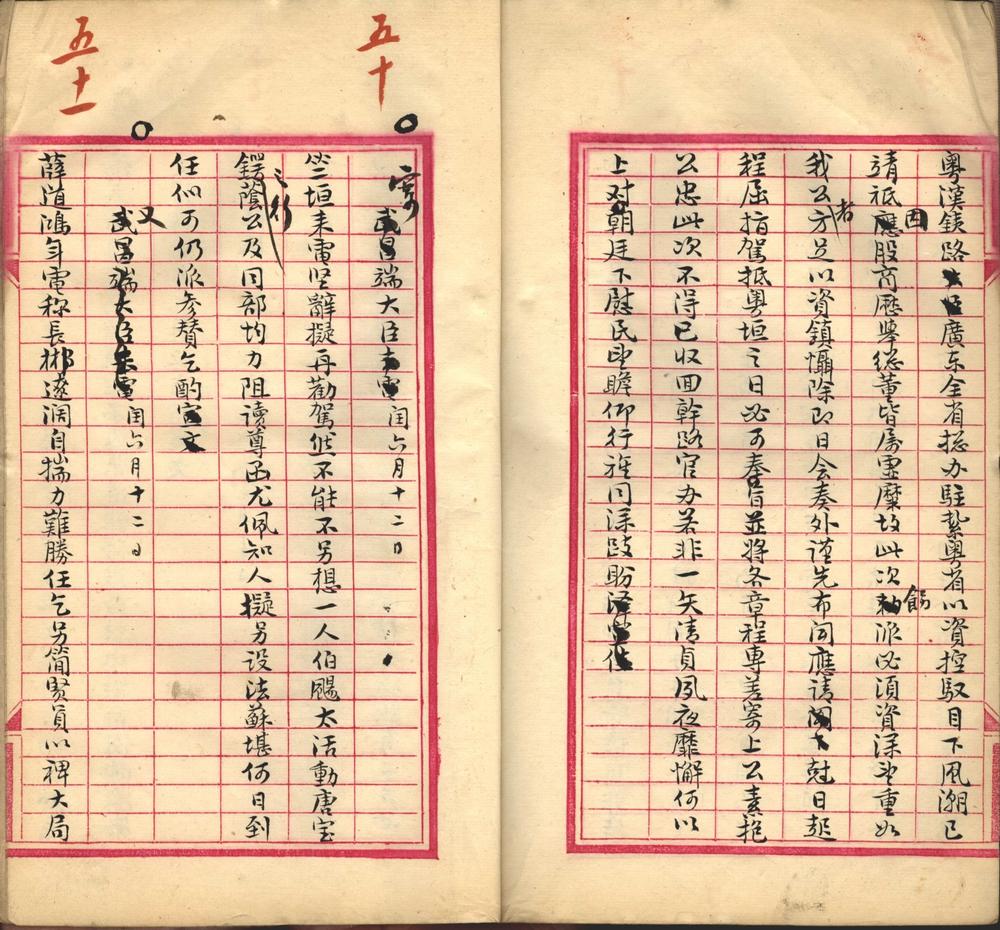 粵漢鐵路廣东全省総办駐紮粵省以資控馭目下風潮已
靖祇因股商歷舉総董皆属虛糜故此次飭派必須資深望重如
我公者方足以資鎮懾除即日会奏外谨先布闻應请尅日起
程屈指駕抵粵垣之日必可奉旨並將各章程專差寄上公素抱
公忠此次不得已収回幹路官办若非一矢清貞夙夜靡懈何以
上对朝廷下慰民望瞻仰行旌同深跂盼
五十
寄武昌端大臣闰六月十二日
竺垣来電坚辭擬再勸駕然不能不另想一人伯颺太活動唐宝
鍔之行蔭公及同部均力阻读尊函尤佩知人擬另设法蘇堪何日到
任似可仍派參赞乞酌
五十一
又闰六月十二日
薛道鴻年電称長郴遼濶自揣力難勝任乞另简賢員以裨大局